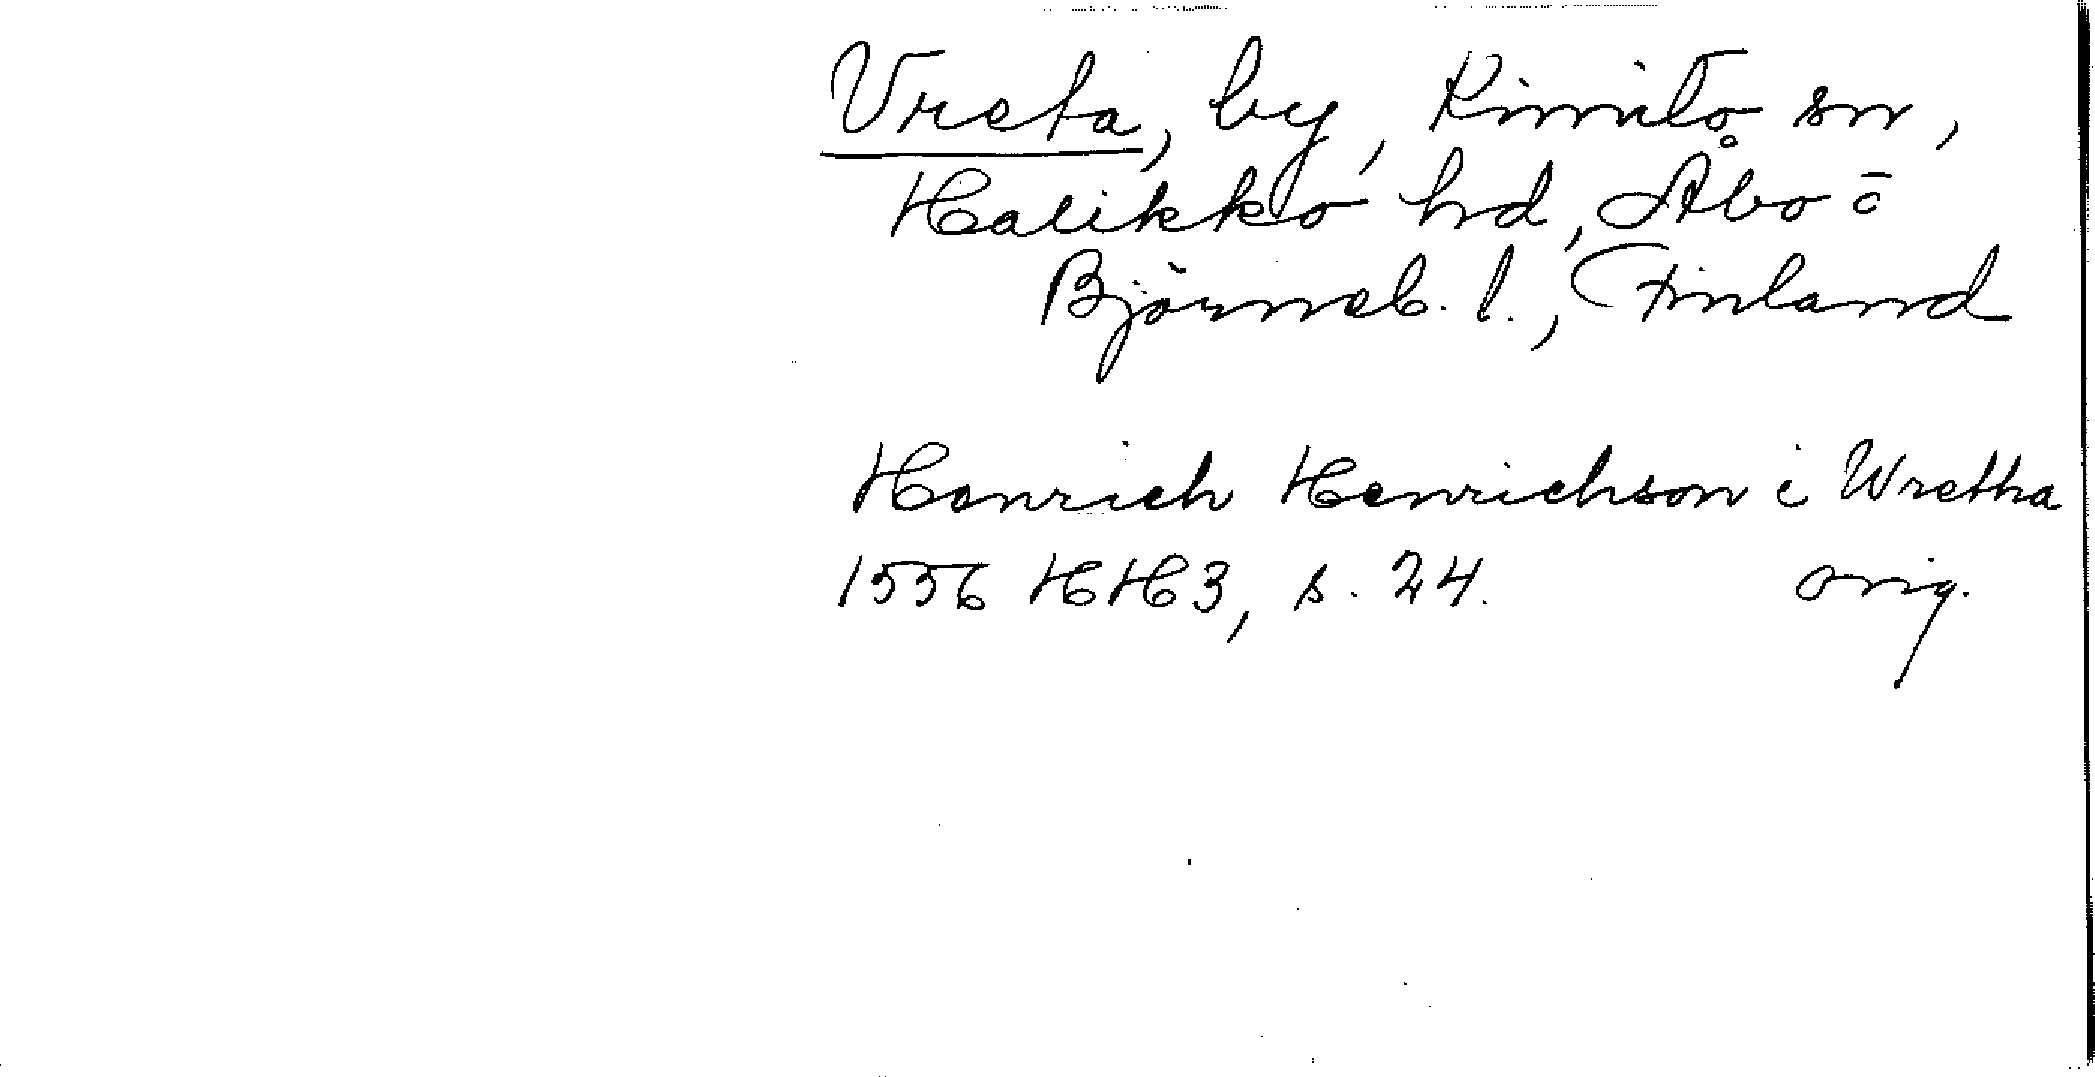 Vreta, by, Kimito sn,
Halikko hd, Åbo o
Björneb. l., Finland
Henrich Henrichson i Wretha
1556 HH3, s. 24. orig.